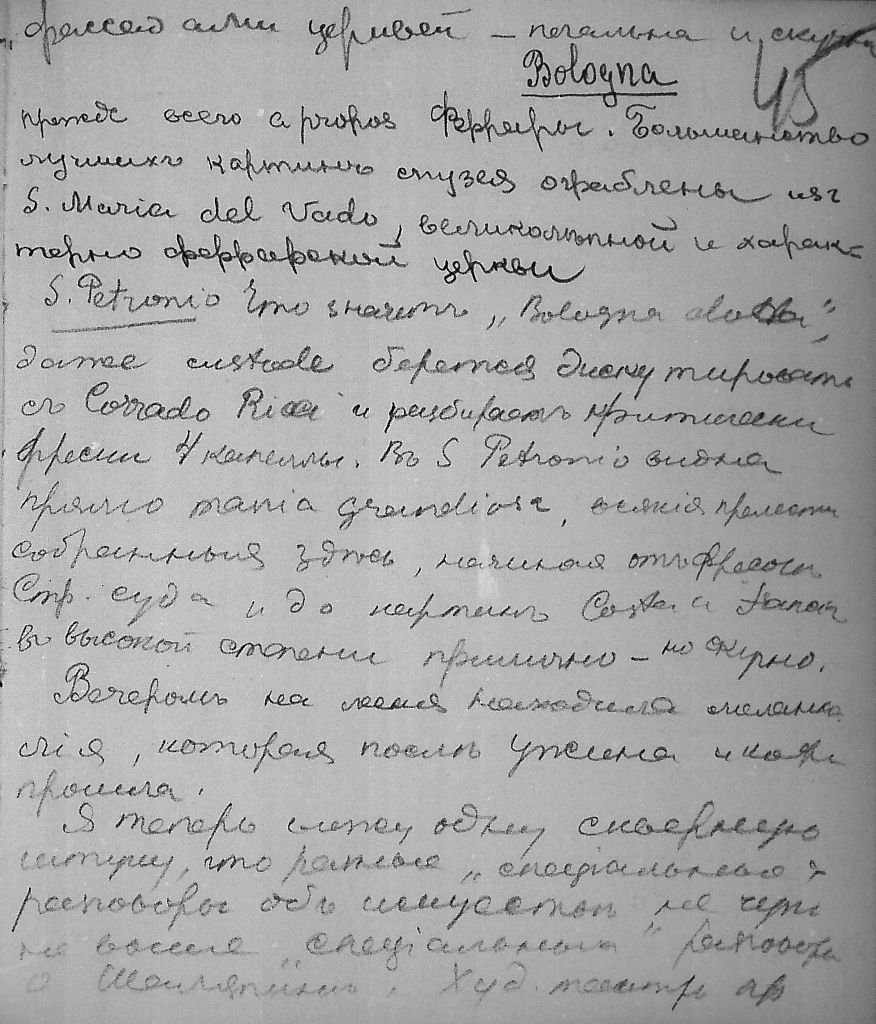 фассадами церквей – печальна и скучна
45
Bologna
прежде всего a propos Феррары. Большинство
лучшихъ картинъ музея ограблены изъ
S. Maria del Vado, великолѣпной и харак=
терно феррарской церкви
S. Petronio Что значитъ „Bologna dotta",
даже custode берется дискутировать
съ Corrado Ricci и разбираетъ критически
фрески 4 капеллы. Въ S Petronio видна
прямо mania grandiosa, всякія прелести
собранныя здѣсь, начиная отъ фресокъ
Стр. суда и до картинъ Costa и
въ высокой степени прилично – но жирно.
Вечеромъ на меня находила меланхо
лія, которая послѣ ужина и кофе
прошла.
Я теперь вижу одну скверную
штуку, что разные „спеціальные"
разговоры объ искусствѣ не чуть
не выше „спеціальныхъ" разговоровъ
о Шаляпинѣ, Худ. театрѣ